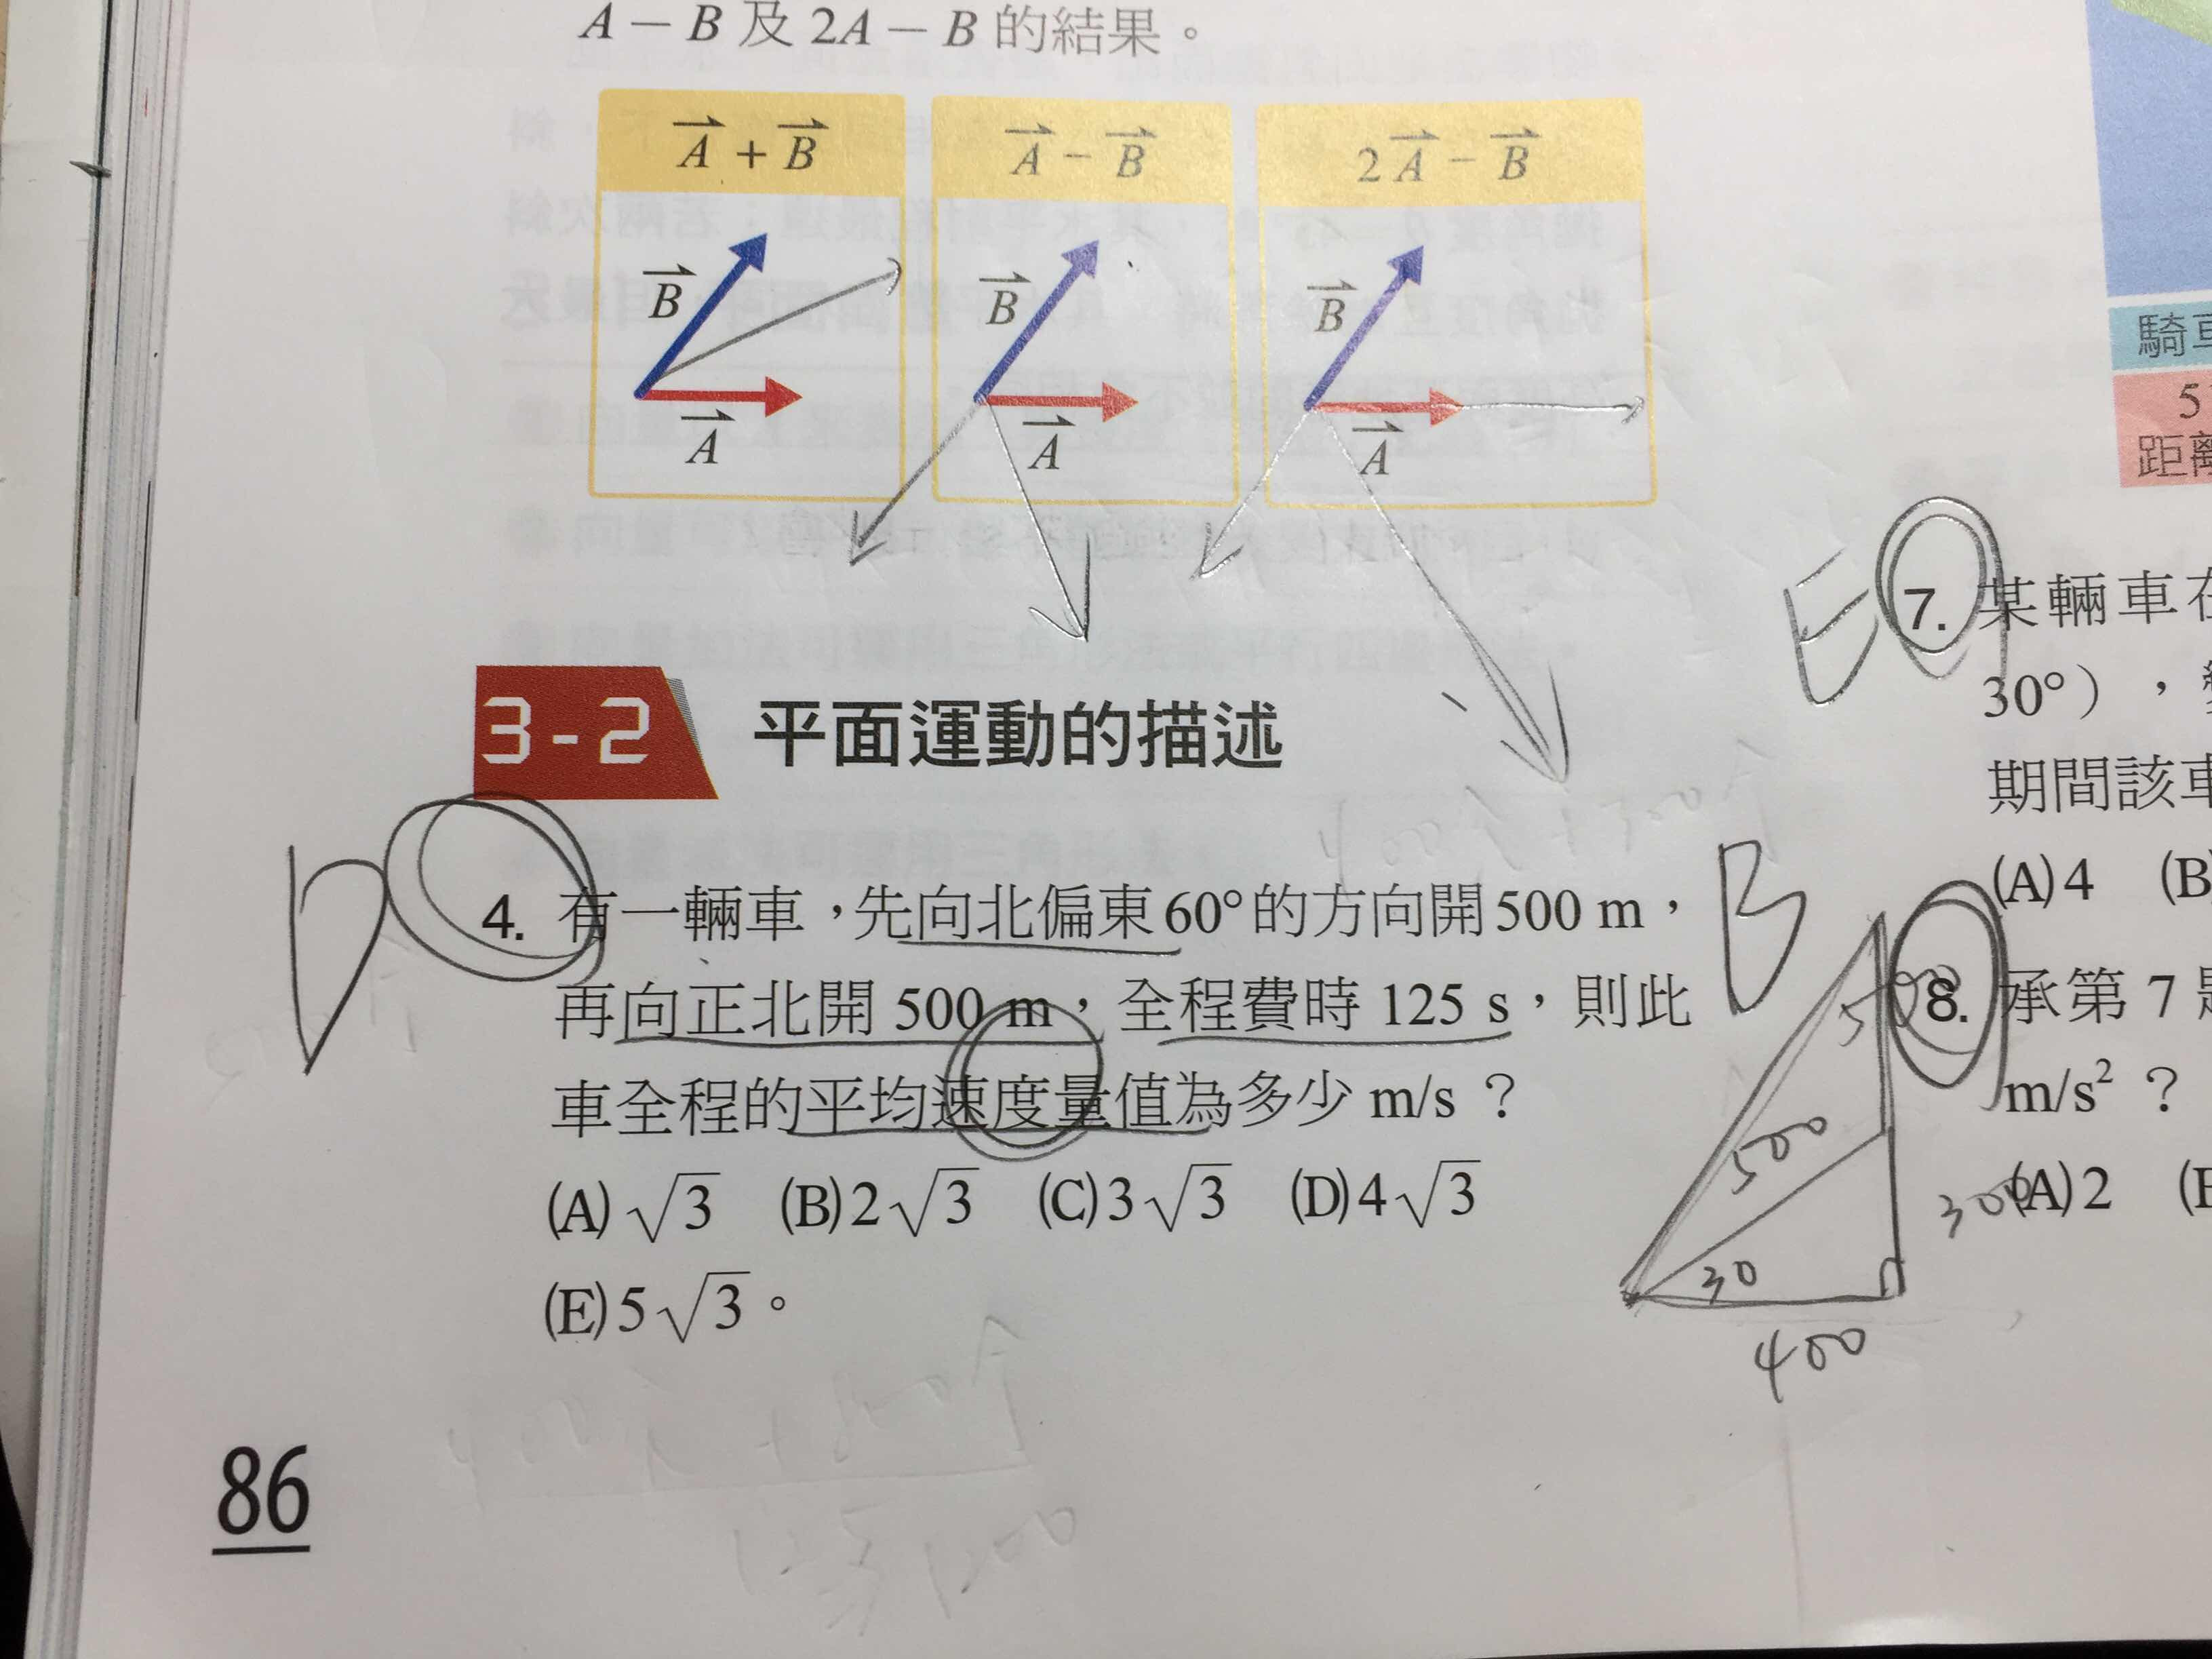 A－B 及 2A－B 的結果。
A + B
A − B
2A − B
B
A
B
A
B
A
3-2 平面運動的描述
D
4. 有一輛車，先向北偏東60°的方向開500 m，
再向正北開 500 m，全程費時 125 s，則此
車全程的平均速度量值為多少 m/s？
(A)√3 (B)2√3 (C)3√3 (D)4√3
(E)5√3。
86
騎車
5
距離
E
7. 某輛車在
30°），
期間該車
(A)4 (B)
B
8. 承第 7 題
m/s²？
(A)2
500
500
300
30
400